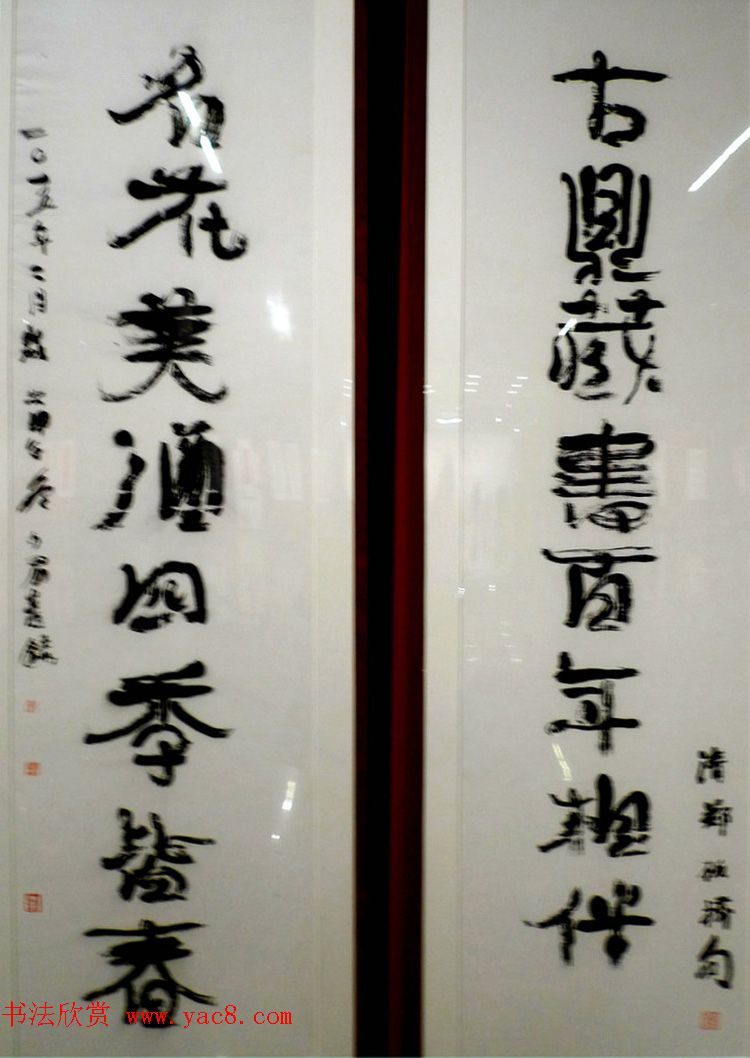 古鼎藏書百年相偕
清鄭 句
名花美酒四季皆春
二〇一五年二月
书法欣赏 www.yac8.com